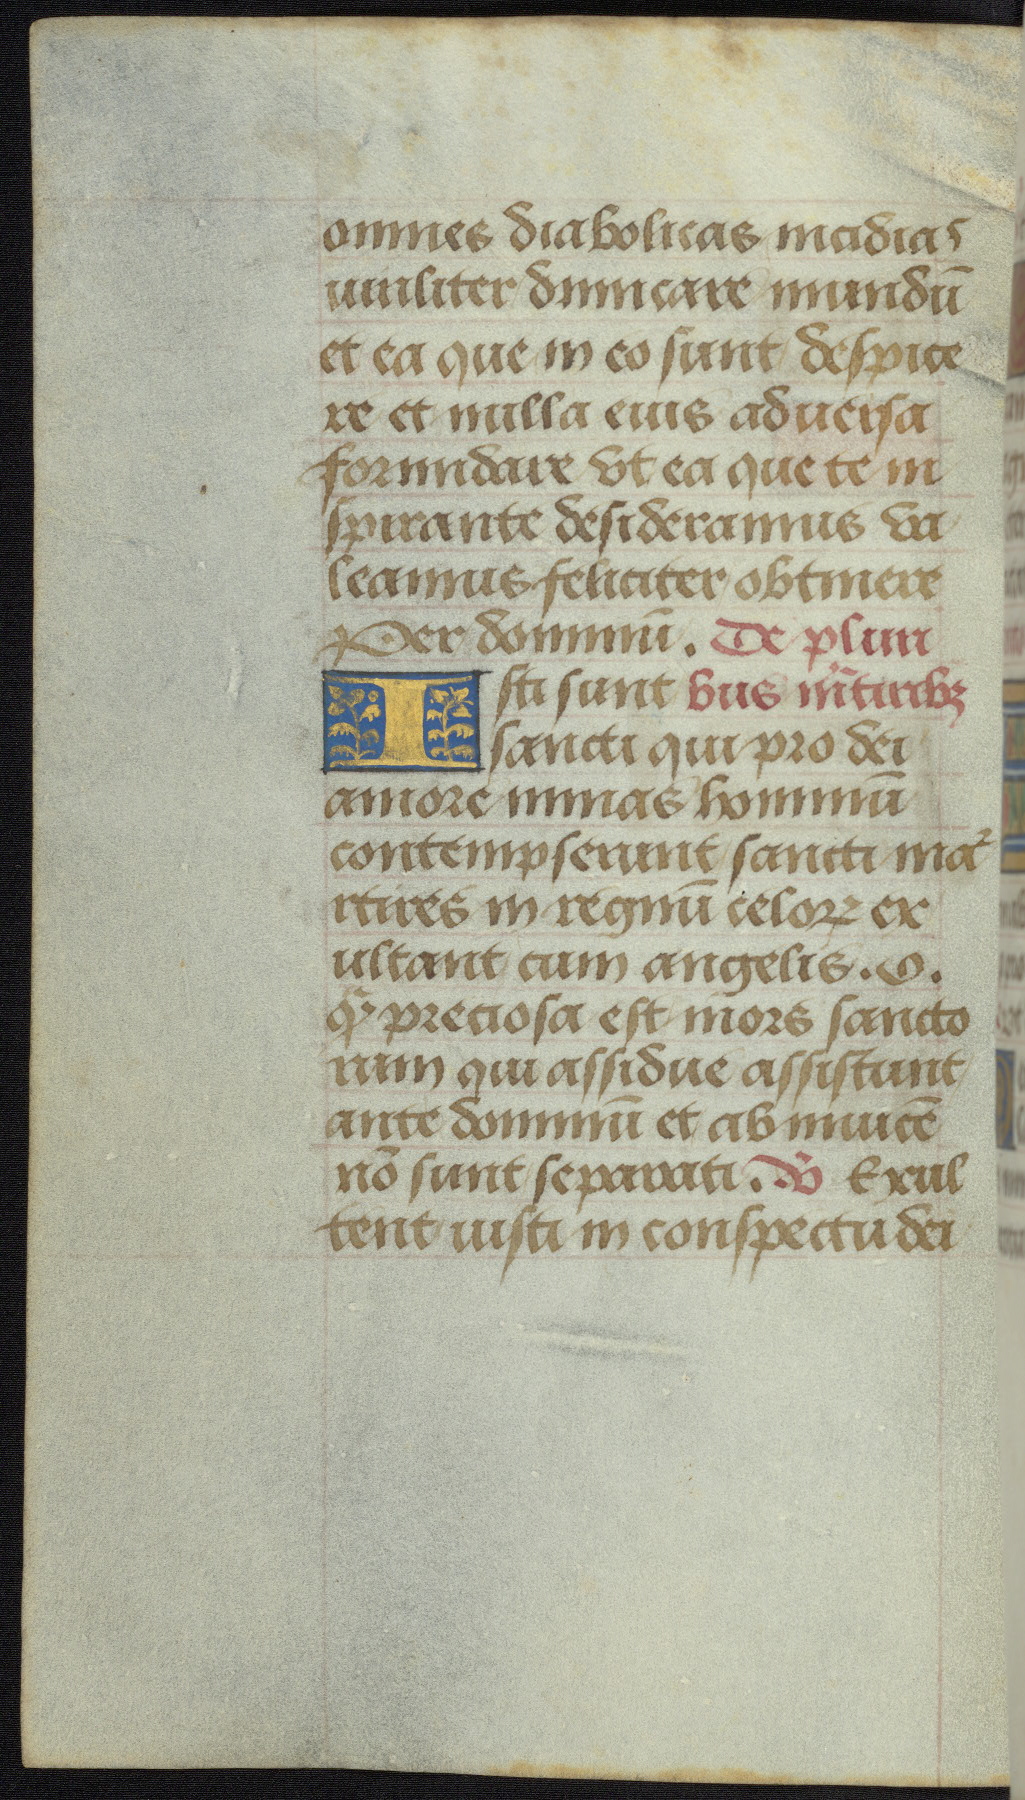 omnes diabolicas incidias
uiriliter dimicare mundū
et ea que in eo sunt despice
re et nulla eius aduersa
formidare vt ea que te in
spirante desideramus va
leamus feliciter obtinere
Per dominū. De pluri
Isti sunt bus m̄tiribꝫ
sancti qui pro dei
amore minas hominū
contempserunt sancti ma
rtires in regnū celoꝝ ex
ultant cum angelis. O.
q̄ preciosa est mors sancto
rum qui assidue assistunt
ante dominū et ab inuicē
nō sunt separati. V̄ Exul
tent iusti in conspectu dei